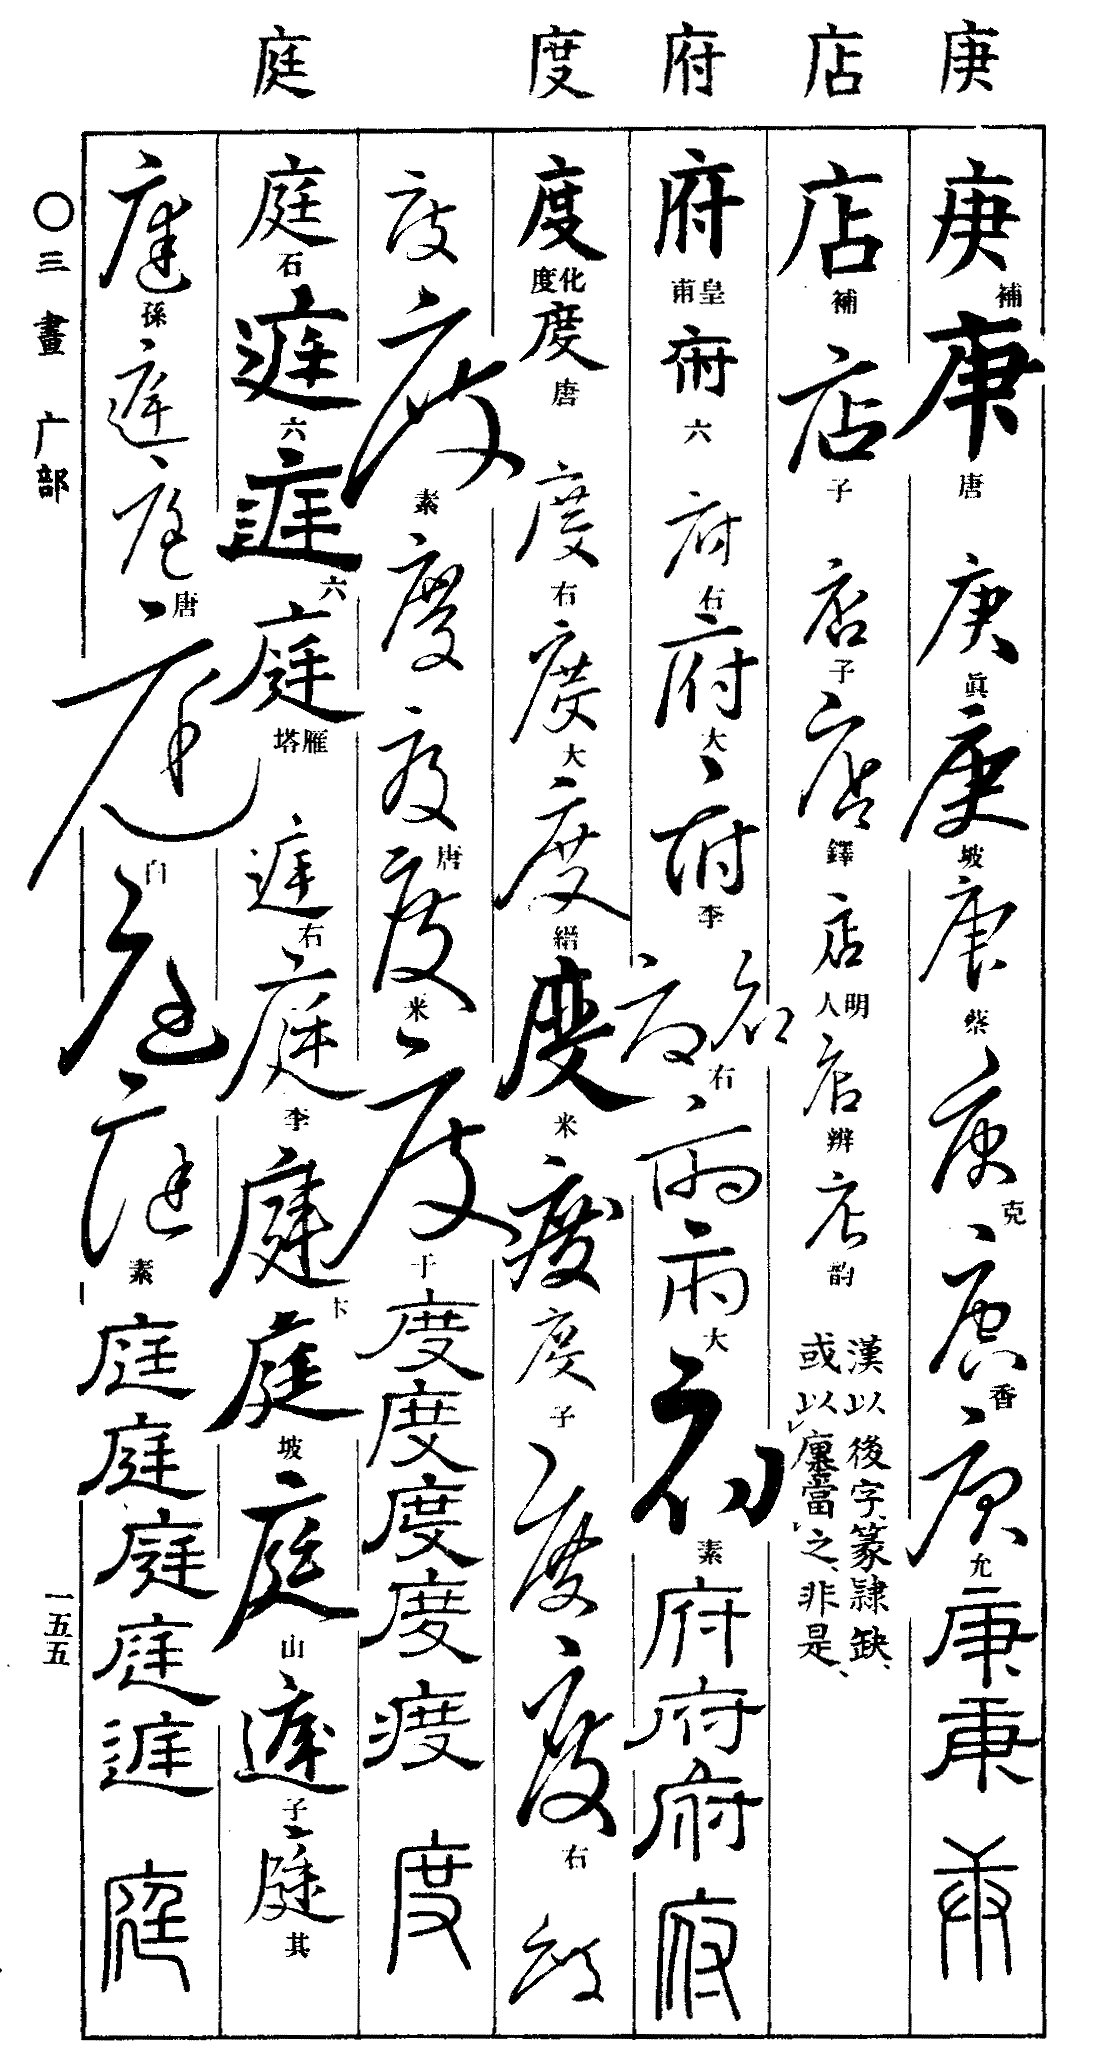 庚 店 府 度 庭
庚 補 庚 唐 庚 眞 庚 坡 庚 蔡 庚 克 庚 香 庚 允 庚 庚 庚
店 補 店 子 店 子 店 鐸 店 明人 店 辨 店 韵
漢以後字、篆隷缺、
或以廛當之、非是、
府 皇甫 府 六 府 右 府 大 府 李 府 府 右 府 府 大 府 素 府 府 府 府
度 化度 度 唐 度 右 度 大 度 縉 度 米 度 度 子 度 度 右 度
度 度 素 度 度 唐 度 米 度 于 度 度 度 度 度 度
庭 石 庭 六 庭 六 庭 雁塔 庭 右 庭 李 庭 卞 庭 坡 庭 山 庭 子 庭 其
庭 孫 庭 庭 唐 庭 白 庭 庭 素 庭 庭 庭 庭 庭 庭
〇三畫 广部
一五五